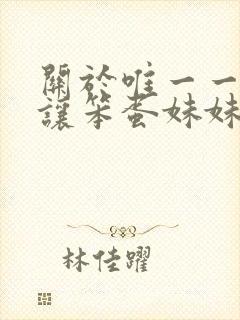 關於唯一一
讓笨蛋妹妹
林佳躍